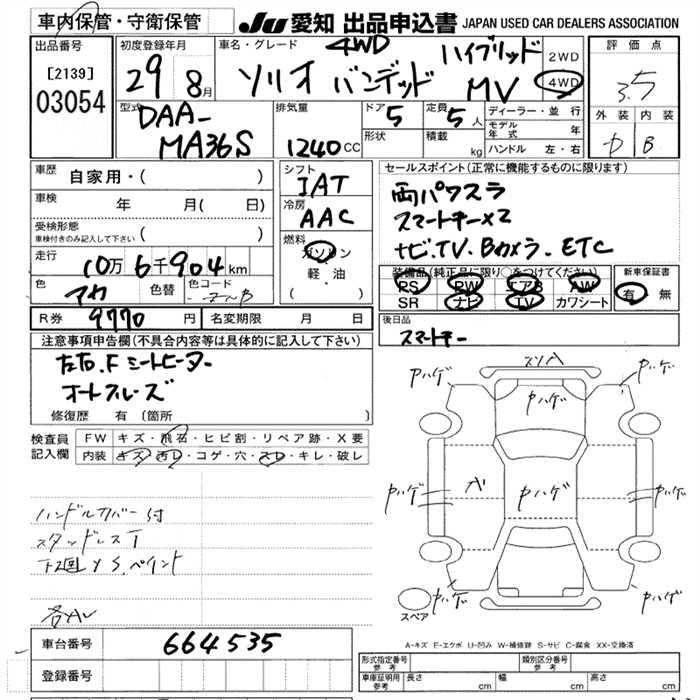 車内保管・守衛保管
JU 愛知 出品申込書 JAPAN USED CAR DEALERS ASSOCIATION
出品番号
[2139]
03054
初度登録年月
29 8月
車名・グレード
4WD
ソリオ バンデッド
ハイブリッド
MV
2WD
4WD
評価点
3.5
外装 内装
D B
型式
DAA-
MA36S
排気量
1240cc
ドア 5
形状
定員 5人
積載 kg
ディーラー・並行
モデル年式 年
ハンドル 左・右
車歴 自家用・( )
車検 年 月( 日)
受検形態
車検付きのみ記入して下さい ( )
走行 10万6千904km
色 アカ 色替 色コード
シフト
IAT
冷房
AAC
燃料
ガソリン
軽・油
( )
セールスポイント(正常に機能するものに限ります)
両パワスラ
スマートキー×2
ナビ.TV.Bカメラ.ETC
装備品(純正品に限り○をつけてください)
PS PW エアB AW
SR ナビ TV カワシート
新車保証書
有 無
R券 9770円 名変期限 月 日
後日品
スマートキー
注意事項申告欄(不具合内容等は具体的に記入して下さい)
左右.Fシートヒーター
オートクルーズ
修復歴 有(箇所 )
検査員記入欄
FW キズ・飛石・ヒビ割・リペア跡・X要
内装 キズ・汚レ・コゲ・穴・スレ・キレ・破レ
ハンドルカバー付
スタッドレスT
下回りS.ペイント
各AU
スリ
Pハゲ
Pハゲ
Pハゲ
Pハゲ
Pハゲ
Pハゲ
Pハゲ
Pハゲ
スペア
A-キズ E-エクボ U-凹み W-補修跡 S-サビ C-腐食 XX-交換済
車台番号 664535
登録番号
形式指定番号 参考
類別区分番号 参考
車庫証明用 参考 長さ cm 幅 cm 高さ cm